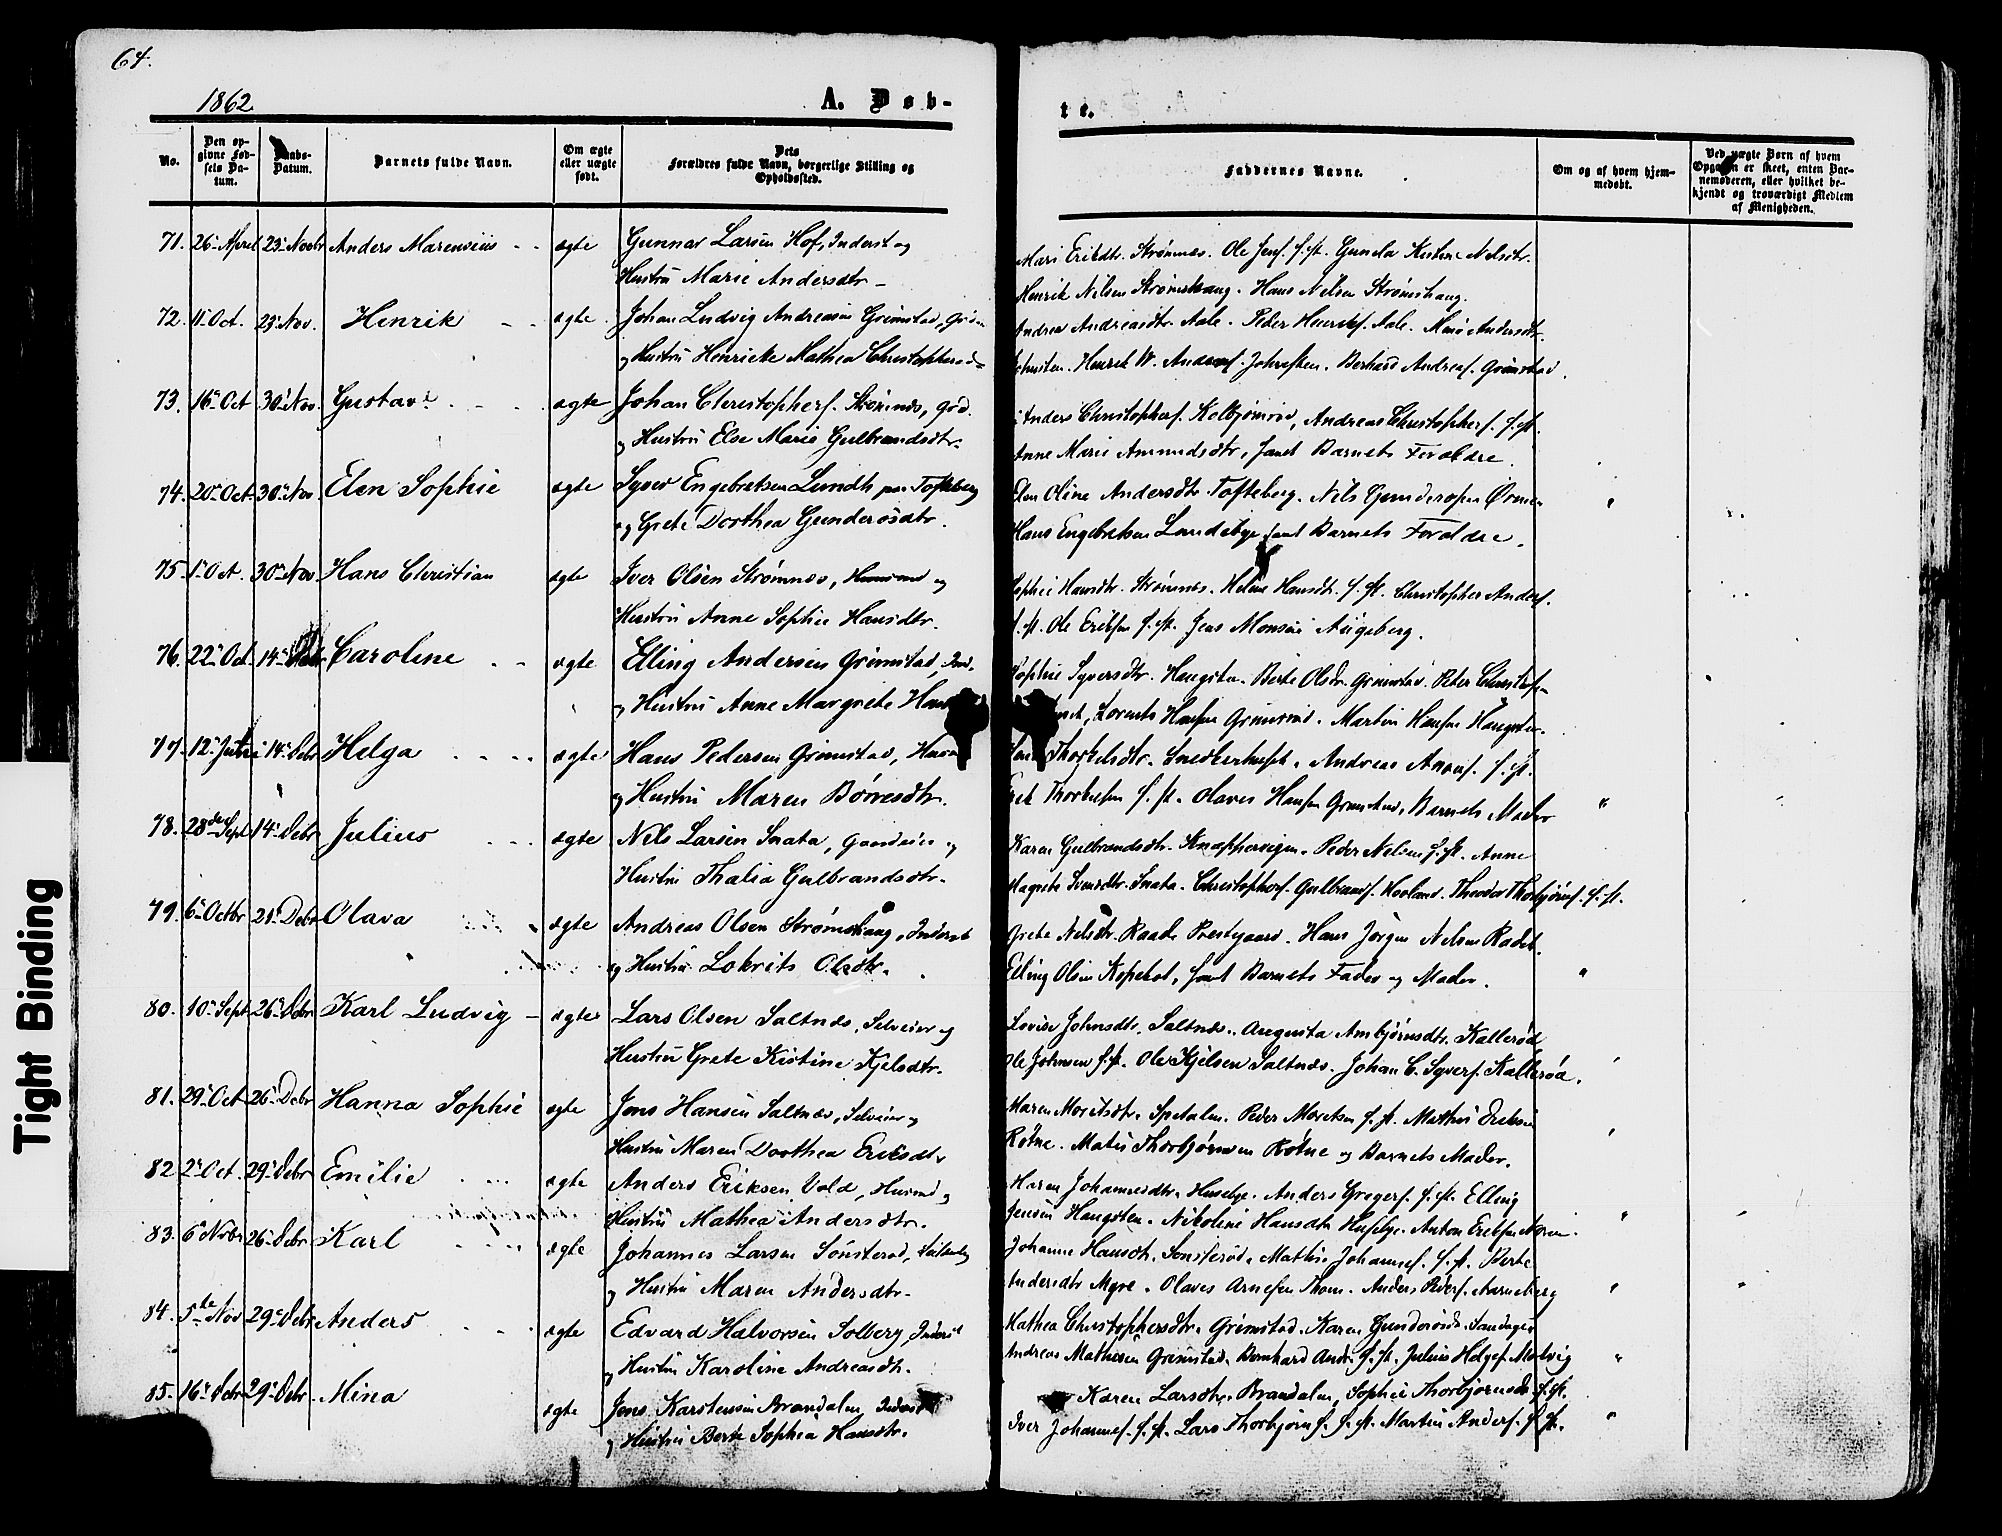 64.
1862
A. Døb-
te.
No.
Den op-
givne Fød-
sels Da-
tum.
Daabs-
Datum.
Barnets fulde Navn.
Om ægte
eller uægte
født.
Dets
Forældres fulde Navn, borgerlige Stilling og
Opholdssted.
Faddernes Navne.
Om og af hvem hjem-
medøbt.
Ved uægte Børn af hvem
Opgaven er skeet, enten Bar-
nemoderen, eller hvilket be-
kjendt og troværdigt Medlem
af Menigheden.
71. 26 April 23 Novbr Anders Marensius - - ægte Gunnar Larsen Hof, Inderst og
Hustru Marie Andersdtr -
Mari Eriksdtr. Strømnæs. Ole Jens. s. st. Gunela Kirstine Nelsdtr.
Henrik Nilsen Strømshaug. Hans Nilsen Strømshaug.
72. 11 Oct. 23 Nov. Henrik - - ægte Johan Ludvig Andreasen Grimstad,
og Hustru Henrikke Mathea Christophersd
Andrea Andreasdtr. Aale. Peder Henriks. Aale. Andersdtr.
Henrik W. Andreas. Berhard Andreas. Grimstad.
73. 16 Oct 30 Nov. Gustav - - ægte Johan Christophers. Strømnæs,
og Hustru Else Marie Gulbrandsdtr.
Anders Christophers. Kolbjørnsrød, Andreas Christophers. s. st.
Anne Marie Amundsdtr, samt Barnets Forældre.
74. 20 Oct. 30 Nov. Elen Sophie ægte Syver Engebretsen Lundth Tofteberg
og Grete Dorthea Gundersdtr.
Elen Oline Andersdtr Tofteberg. Nils Gundersen
Hans Engebretsen Lundebye, samt Barnets Forældre.
75. 1 Oct. 30 Nov Hans Christian ægte Iver Olsen Strømnæs, Husmand og
Hustru Anne Sophie Hansdtr.
Sophie Hansdtr. Strømnæs. Helene Hansdtr. s. st. Christopher Anders.
s. st. Ole Eriksen s. st. Jens Monsen Augeberg.
76. 22 Oct. 14 Debr Caroline - - ægte Elling Andersen Grimstad,
og Hustru Anne Margrete
Sophie Syversdtr. Haugsten. Berte Olsdr. Grimstad. Peter
Lorents Hansen Grimsrød. Martin Hansen Haugsten.
77. 12 14 Debr Helga - - - - ægte Hans Pedersen Grimstad,
og Hustru Maren Børresdtr.
Thorkelsdtr. Andreas s. st.
s. st. Olaves Hansen Grimstad, Barnets Moder "
78. 28de Sept 14 Debr Julius - - - ægte Nils Larsen Snata, Gaardeier og
Hustru Thalia Gulbrandsdtr.
Karen Gulbrandsdtr. Peder Nelsen s. st. Anne
Magrete Svensdtr. Snata. Christophers. Theodor Thorbjørns. s. st.
79. 6 Octbr 21 Debr Olava ægte Andreas Olsen Strømshaug, Inderst
og Hustru Lokrits Olsdtr.
Grete Nelsdtr. Raade Prestgaard. Hans Jørgen Nelsen Raade.
Elling Olsen Kopekot, samt Barnets Fader og Moder. "
80. 10 Sept. 26 Debr Karl Ludvig - ægte Lars Olsen Saltnæs, Selveier og
Hustru Grete Kistine Kjelsdtr.
Lovise Johnsdtr. Saltnæs. Augusta Ambjørnsdtr. Kallerød
Ole Johnsen s. st. Ole Kjelsen Saltnæs. Johan C. Syvers. Kallerød.
81. 29 Oct 26 Debr Hanna Sophie ægte Jens Hansen Saltnæs, Selveier og
Hustru Maren Dorthea Eriksdtr
Maren Moritsdtr. Spetalen. Peder Moritsen s. st. Mathis Eriksen
Røtne. Matis Thorbjørnsen Røtne og Barnets Moder.
82 2 Oct. 29 Debr Emilie ægte Anders Eriksen Vold, Husmd og
Hustru Mathea Andersdtr.
Maren Johannesdtr. Husebye. Anders Gregers. s. st. Elling
Jensen Haugsten. Nikoline Hansdtr Husebye. Anton Eriksen "
83. 6 Novbr 26 Debr. Karl ægte Johannes Larsen Sønsterød,
og Hustru Maren Andersdtr.
Johanne Hansdtr. Sønsterød. Mathis Johannes. s. st. Berte
Andersdtr Myre. Olaves Arnesen Thom. Anders Peders. "
84. 5te Nov 29 Debr Anders ægte Edvard Halvorsen Solberg, Inderst
og Hustru Karoline Andreasdtr.
Mathea Christophersdtr. Grimstad. Karen
Andreas Mathisen Grimstad. Bernhard Andr. s. st. Julius "
85. 16 Debr 29 Debr. Mina ægte Jens Karstensen Brandalen, Inderst
og Hustru Berte Sophia Hansdtr.
Karen Larsdtr. Brandalen, Sophie Thorbjørnsdtr s. st.
Iver Johannes. s. st. Lars Thorbjørns. s. st. Martin Anders. s. st. "
Tight Binding